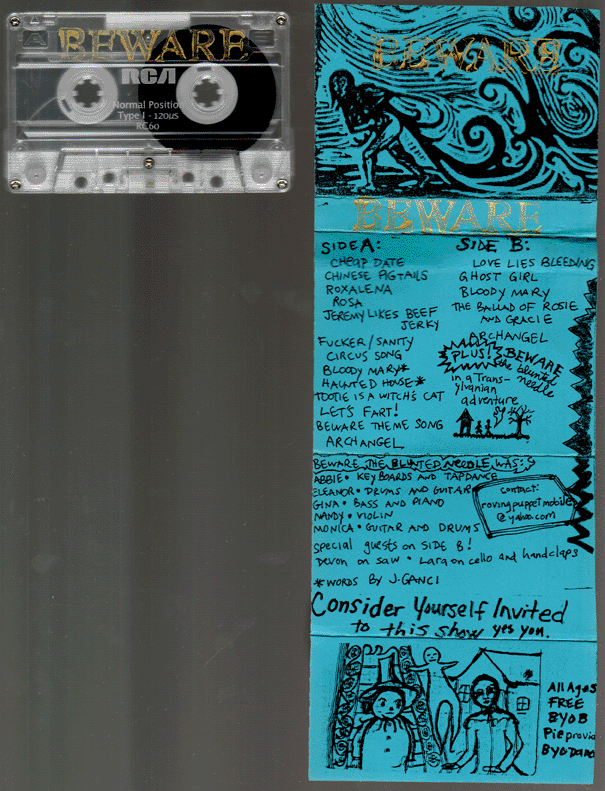 BEWARE
A
RCA
Normal Position
Type I - 120µs
RC60
BEWARE
BEWARE
SIDE A:
CHEAP DATE
CHINESE PIGTAILS
ROXALENA
ROSA
JEREMY LIKES BEEF
JERKY
FUCKER/SANITY
CIRCUS SONG
BLOODY MARY*
HAUNTED HOUSE*
TOOTIE IS A WITCH'S CAT
LET'S FART!
BEWARE THEME SONG
ARCHANGEL
SIDE B:
LOVE LIES BLEEDING
GHOST GIRL
BLOODY MARY
THE BALLAD OF ROSIE
AND GRACIE
ARCHANGEL
PLUS! BEWARE
the blunted
needle
in a Trans-
sylvanian
adventure
BEWARE THE BLUNTED NEEDLE WAS:
ABBIE • KEYBOARDS AND TAPDANCE
ELEANOR • DRUMS AND GUITAR
GINA • BASS AND PIANO
MANDY • VIOLIN
MONICA • GUITAR AND DRUMS
contact:
rovingpuppetmobile
@yahoo.com
special guests on SIDE B!
Devon on saw • Lara on cello and handclaps
*WORDS BY J. GANCI
Consider Yourself Invited
to this show yes you.
All Ages
FREE
BYOB
Pie provid